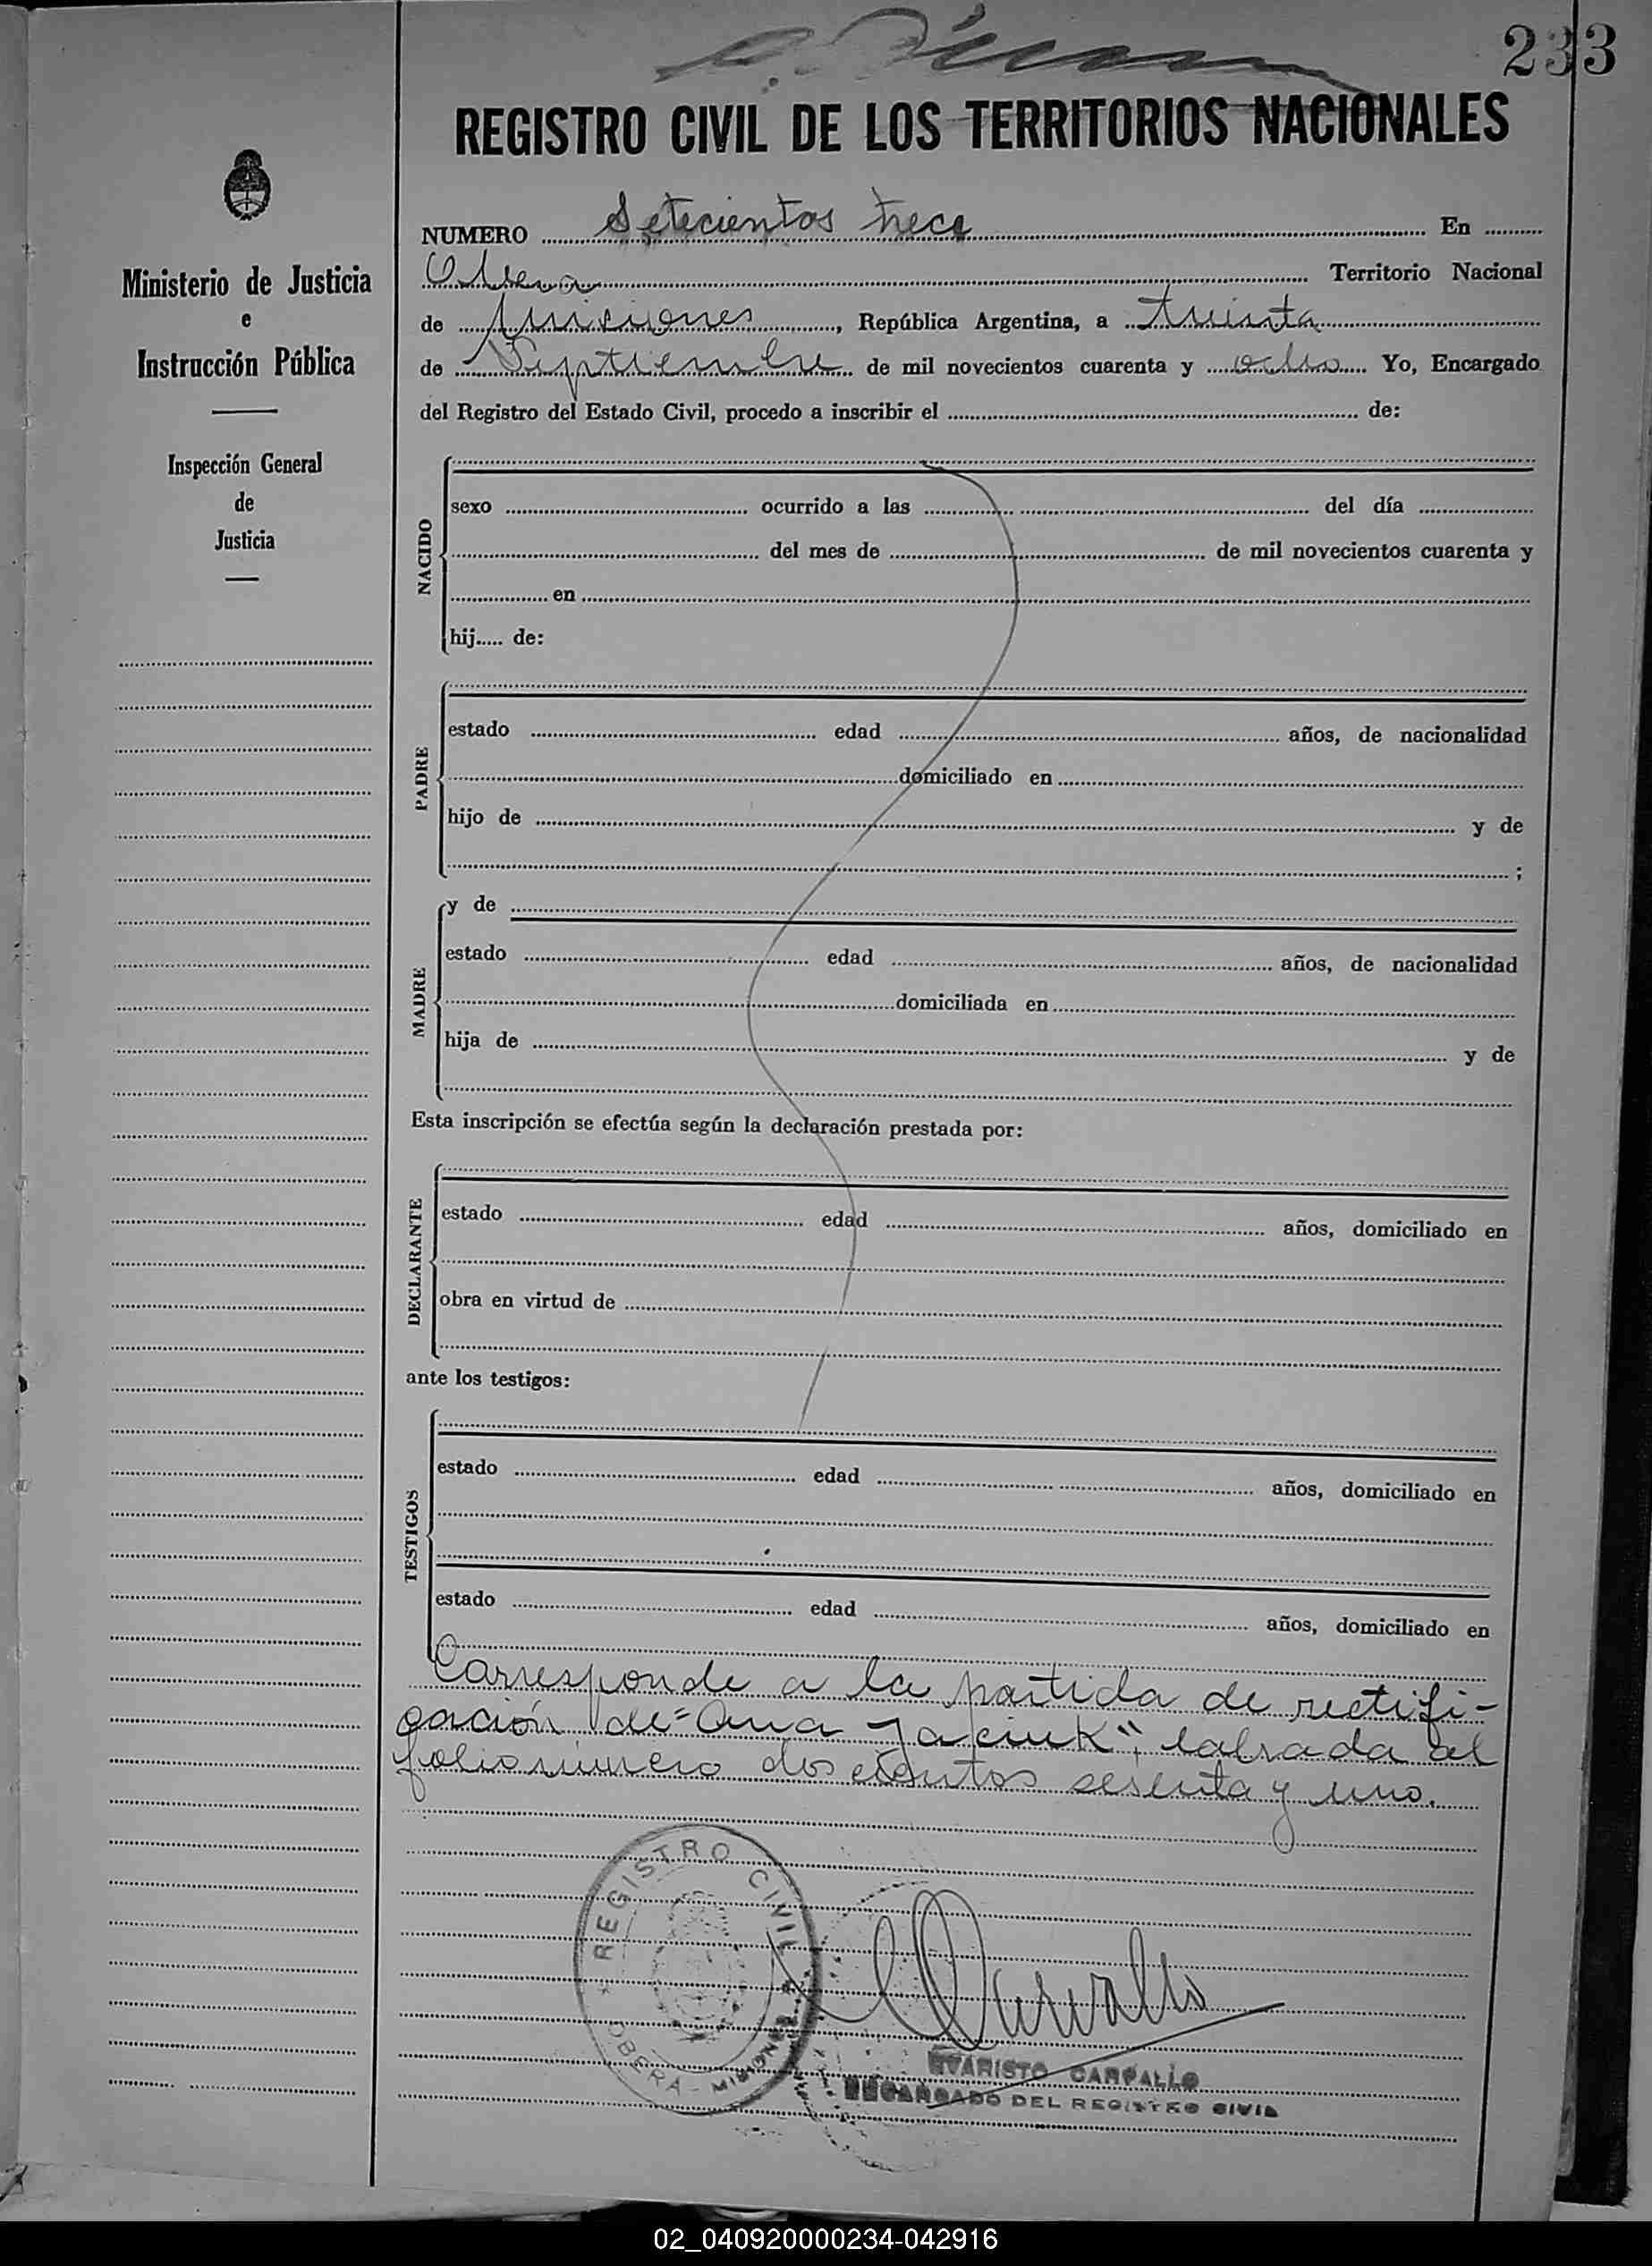 233
REGISTRO CIVIL DE LOS TERRITORIOS NACIONALES
Ministerio de Justicia
e
Instrucción Pública
Inspección General
de
Justicia
NUMERO Setecientos trece En
Oberá Territorio Nacional
de Misiones, República Argentina, a treinta
de Septiembre de mil novecientos cuarenta y ocho Yo, Encargado
del Registro del Estado Civil, procedo a inscribir el de:
NACIDO
sexo ocurrido a las del día
del mes de de mil novecientos cuarenta y
en
hij..... de:
PADRE
estado edad años, de nacionalidad
domiciliado en
hijo de y de
;
MADRE
y de
estado edad años, de nacionalidad
domiciliada en
hija de y de
Esta inscripción se efectúa según la declaración prestada por:
DECLARANTE
estado edad años, domiciliado en
obra en virtud de
ante los testigos:
TESTIGOS
estado edad años, domiciliado en
estado edad años, domiciliado en
Corresponde a la partida de rectifi-
cación de "Ana Jaciuk", labrada al
folio número doscientos sesenta y uno.
REGISTRO CIVIL
OBERA - MISIONES
EVARISTO CARVALLO
ENCARGADO DEL REGISTRO CIVIL
02_040920000234-042916